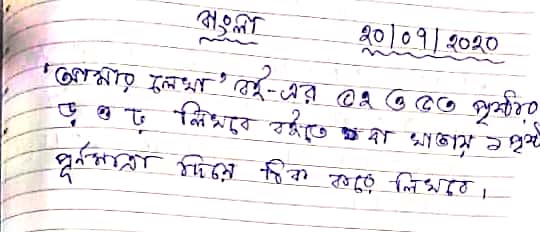 বাংলা
২০/০৭/২০২০
'আমার লেখা' বই-এর ৫২ ও ৫৩ পৃষ্ঠার
ড় ও ঢ় লিখবে বইতে বা খাতায় ১ পৃষ্ঠা
পূর্ণমাত্রা দিয়ে ঠিক করে লিখবে।